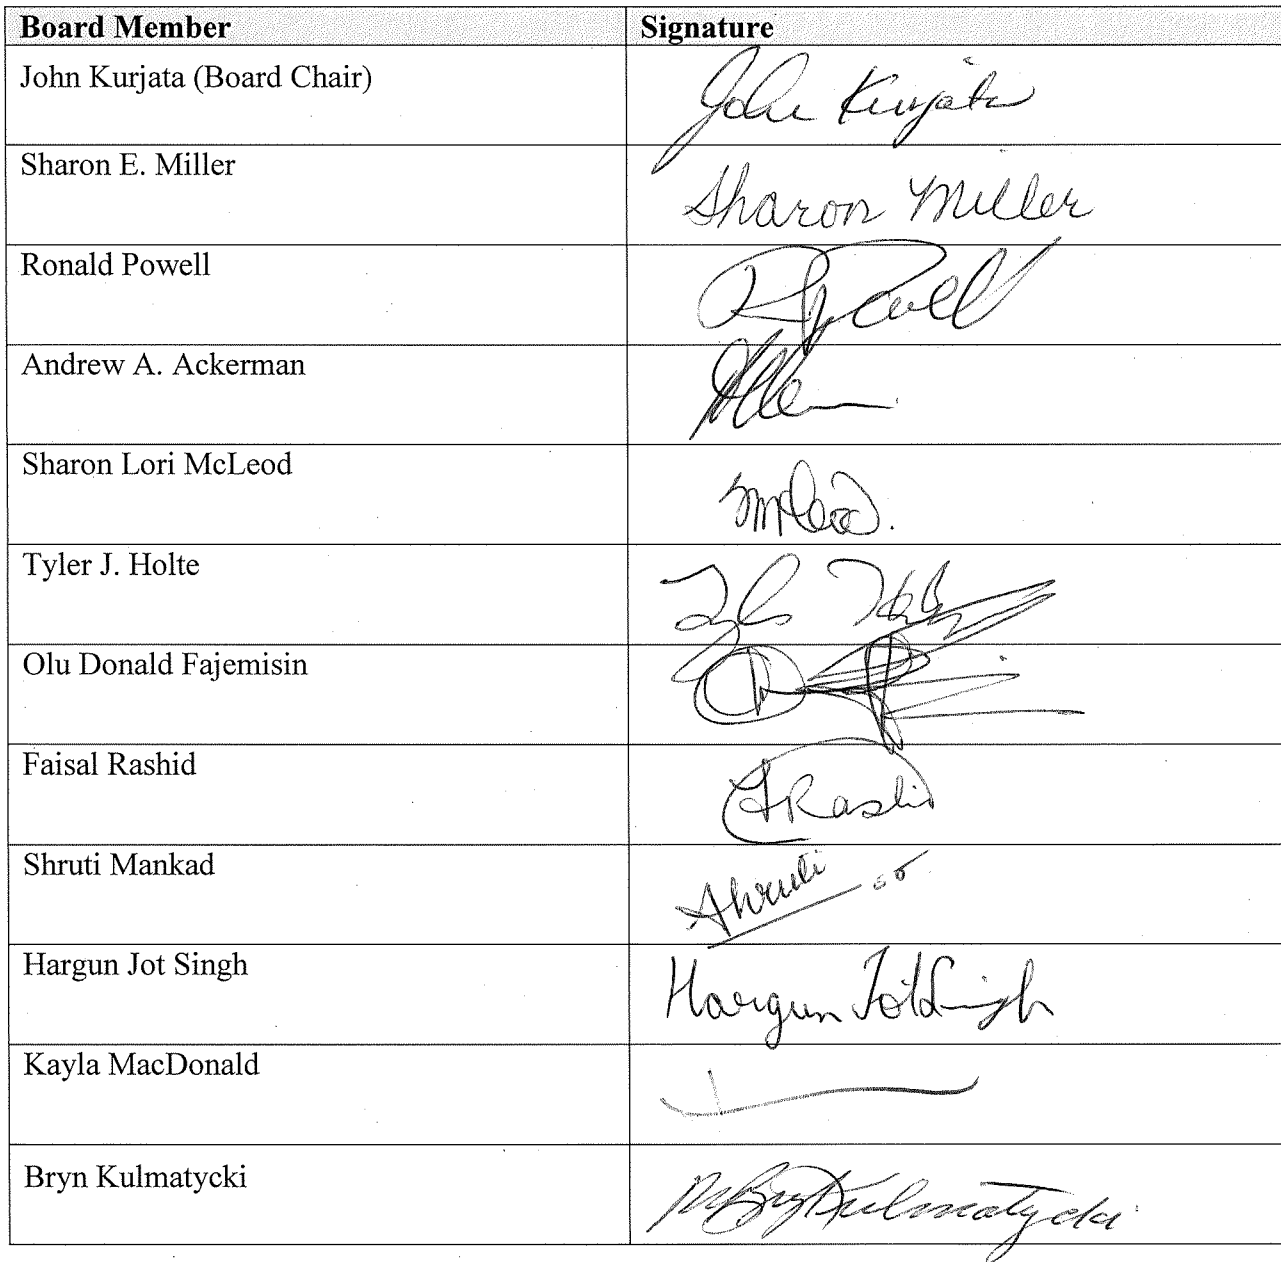 Board Member Signature
John Kurjata (Board Chair) John Kurjata
Sharon E. Miller Sharon Miller
Ronald Powell RPowell
Andrew A. Ackerman
Sharon Lori McLeod SMcLeod.
Tyler J. Holte
Olu Donald Fajemisin
Faisal Rashid FRashid
Shruti Mankad Shruti
Hargun Jot Singh Hargun Jot Singh
Kayla MacDonald
Bryn Kulmatycki MBrynKulmatycki